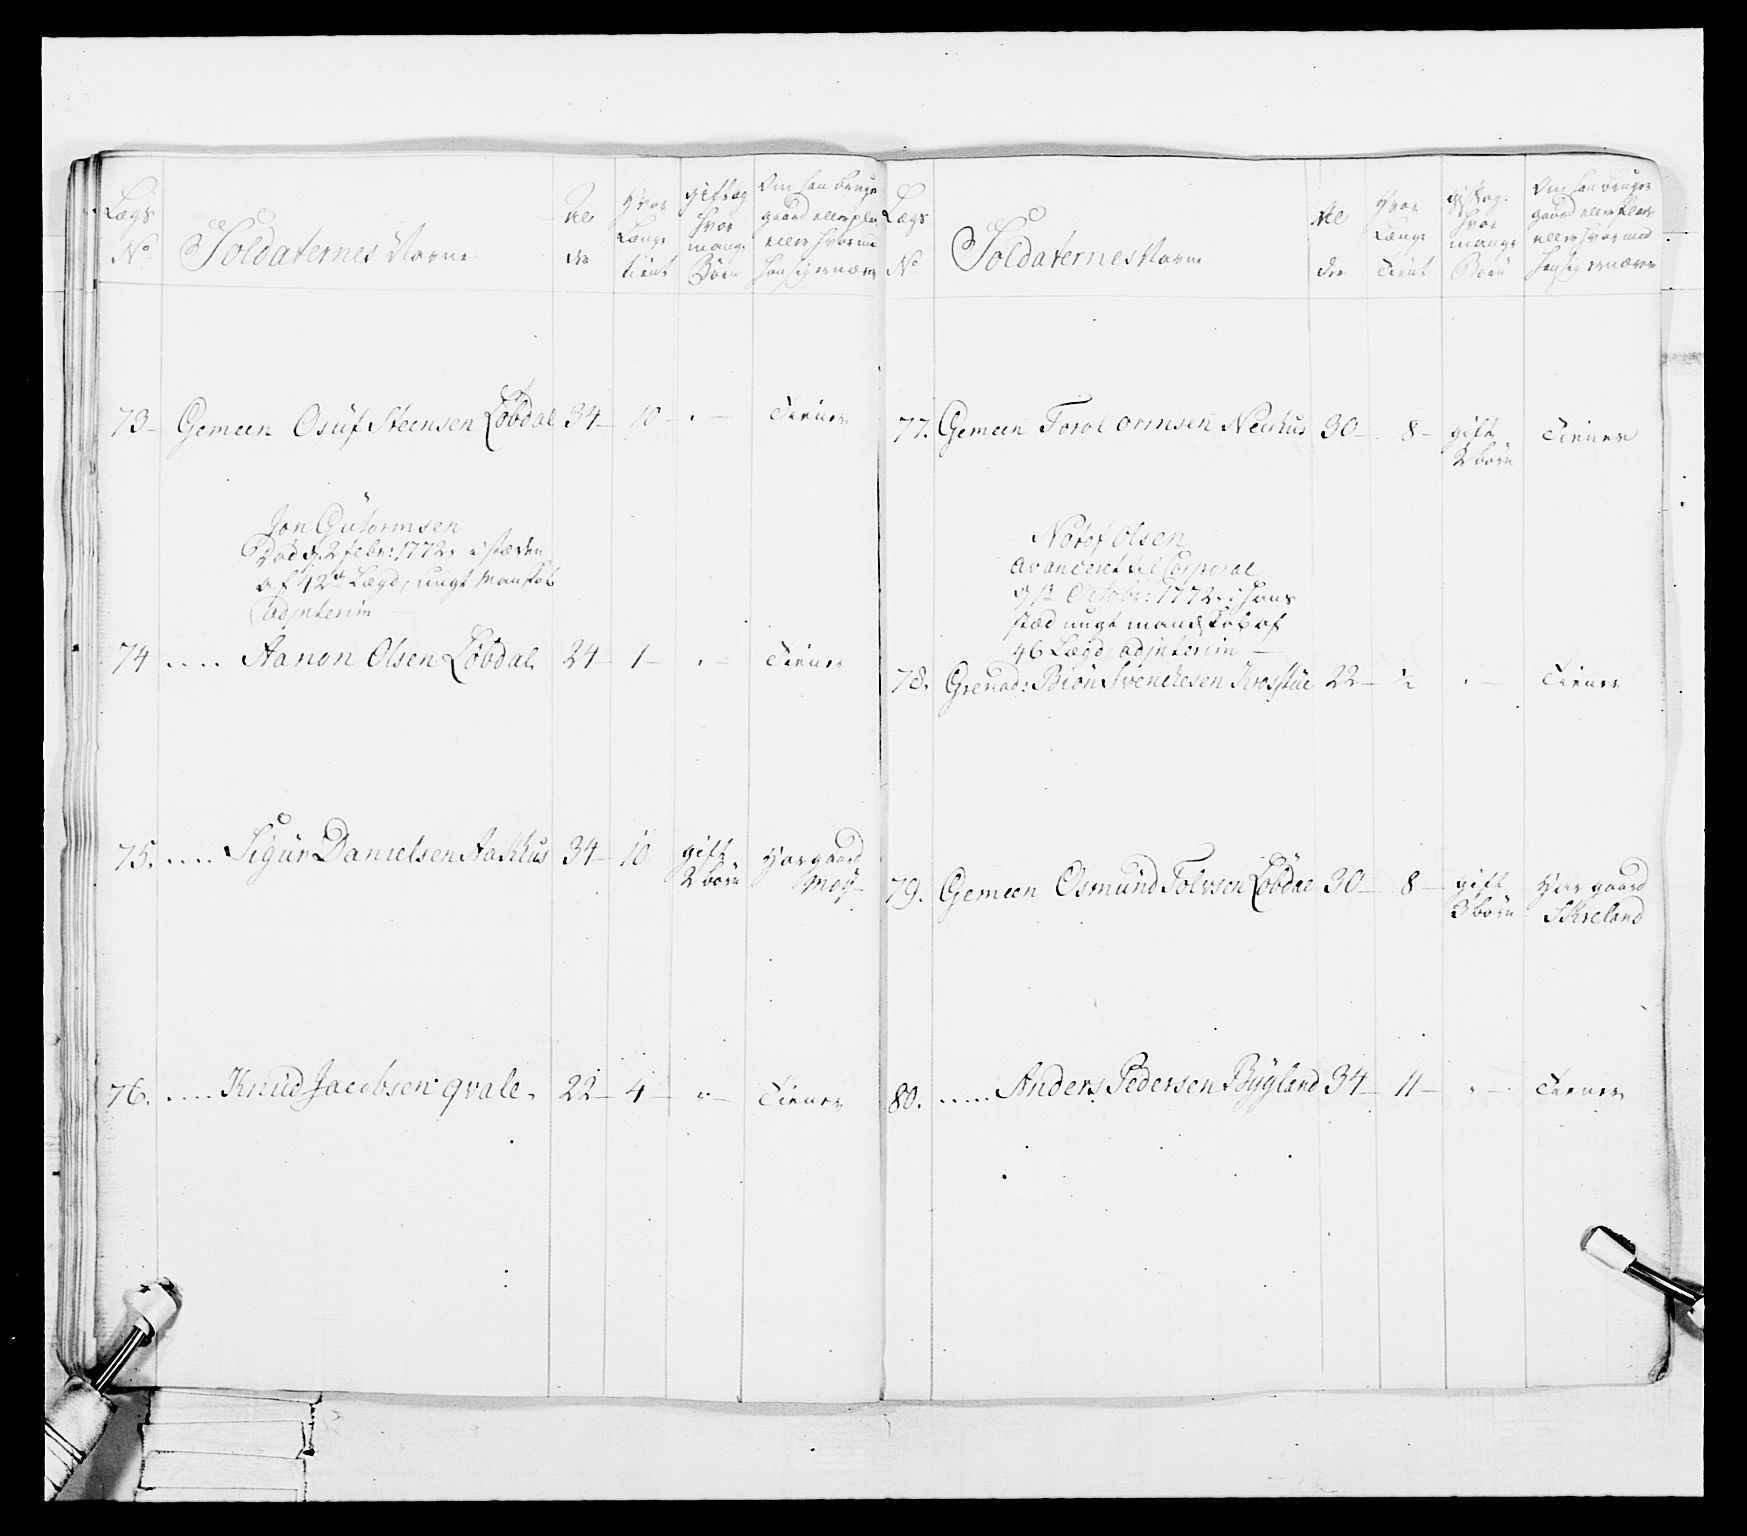 Lægs No
Soldaternes Navne
Al der
Hvor Længe tient
gift og hvor mange Børn
Om han bruger gaard eller plads eller hvormed han sig ernærer
73 – Gemeen Osuf Steensen Löbdal 34 – 10 – . – Tiener
Jon Gutormsen
Død d. 2 febr: 1772. i stæden
af 42de Lægd, ungt Manskab
adjnterim –
74 ..... Aanon Olsen Löbdal 24 – 1 – . – Tiener
75. .... Sigur Danielsen Aakhus 34 – 10 gift Har gaard
2 börn Moÿ –
76. ..... Knud Jacobsen qvale. 22 – 4 – „ – Tiener
Lægs No
Soldaternes Navne
Al der
Hvor Længe Tient
gift og hvor mange Börn
Om han bruger gaard eller Plads eller hvormed han sig ernærer
77. Gemeen Torol ormsen 30 – 8 – gift Tiener
2 börn
Olsen
avanceret til Corporal
d 1te Octobr: 1772. i Hans
stæd ungt mandskab af
46 Lægd, adjnterim –
78. Grenad: Biön Svenchesen 22 – ½ . – Tiener
79. Gemeen Osmund Tolvsen Löbdal 30 – 8 – gift Har gaard
3 börn Skreland
80. ..... Anders Pedersen Bÿgland 34 – 11 – „ – Tiener